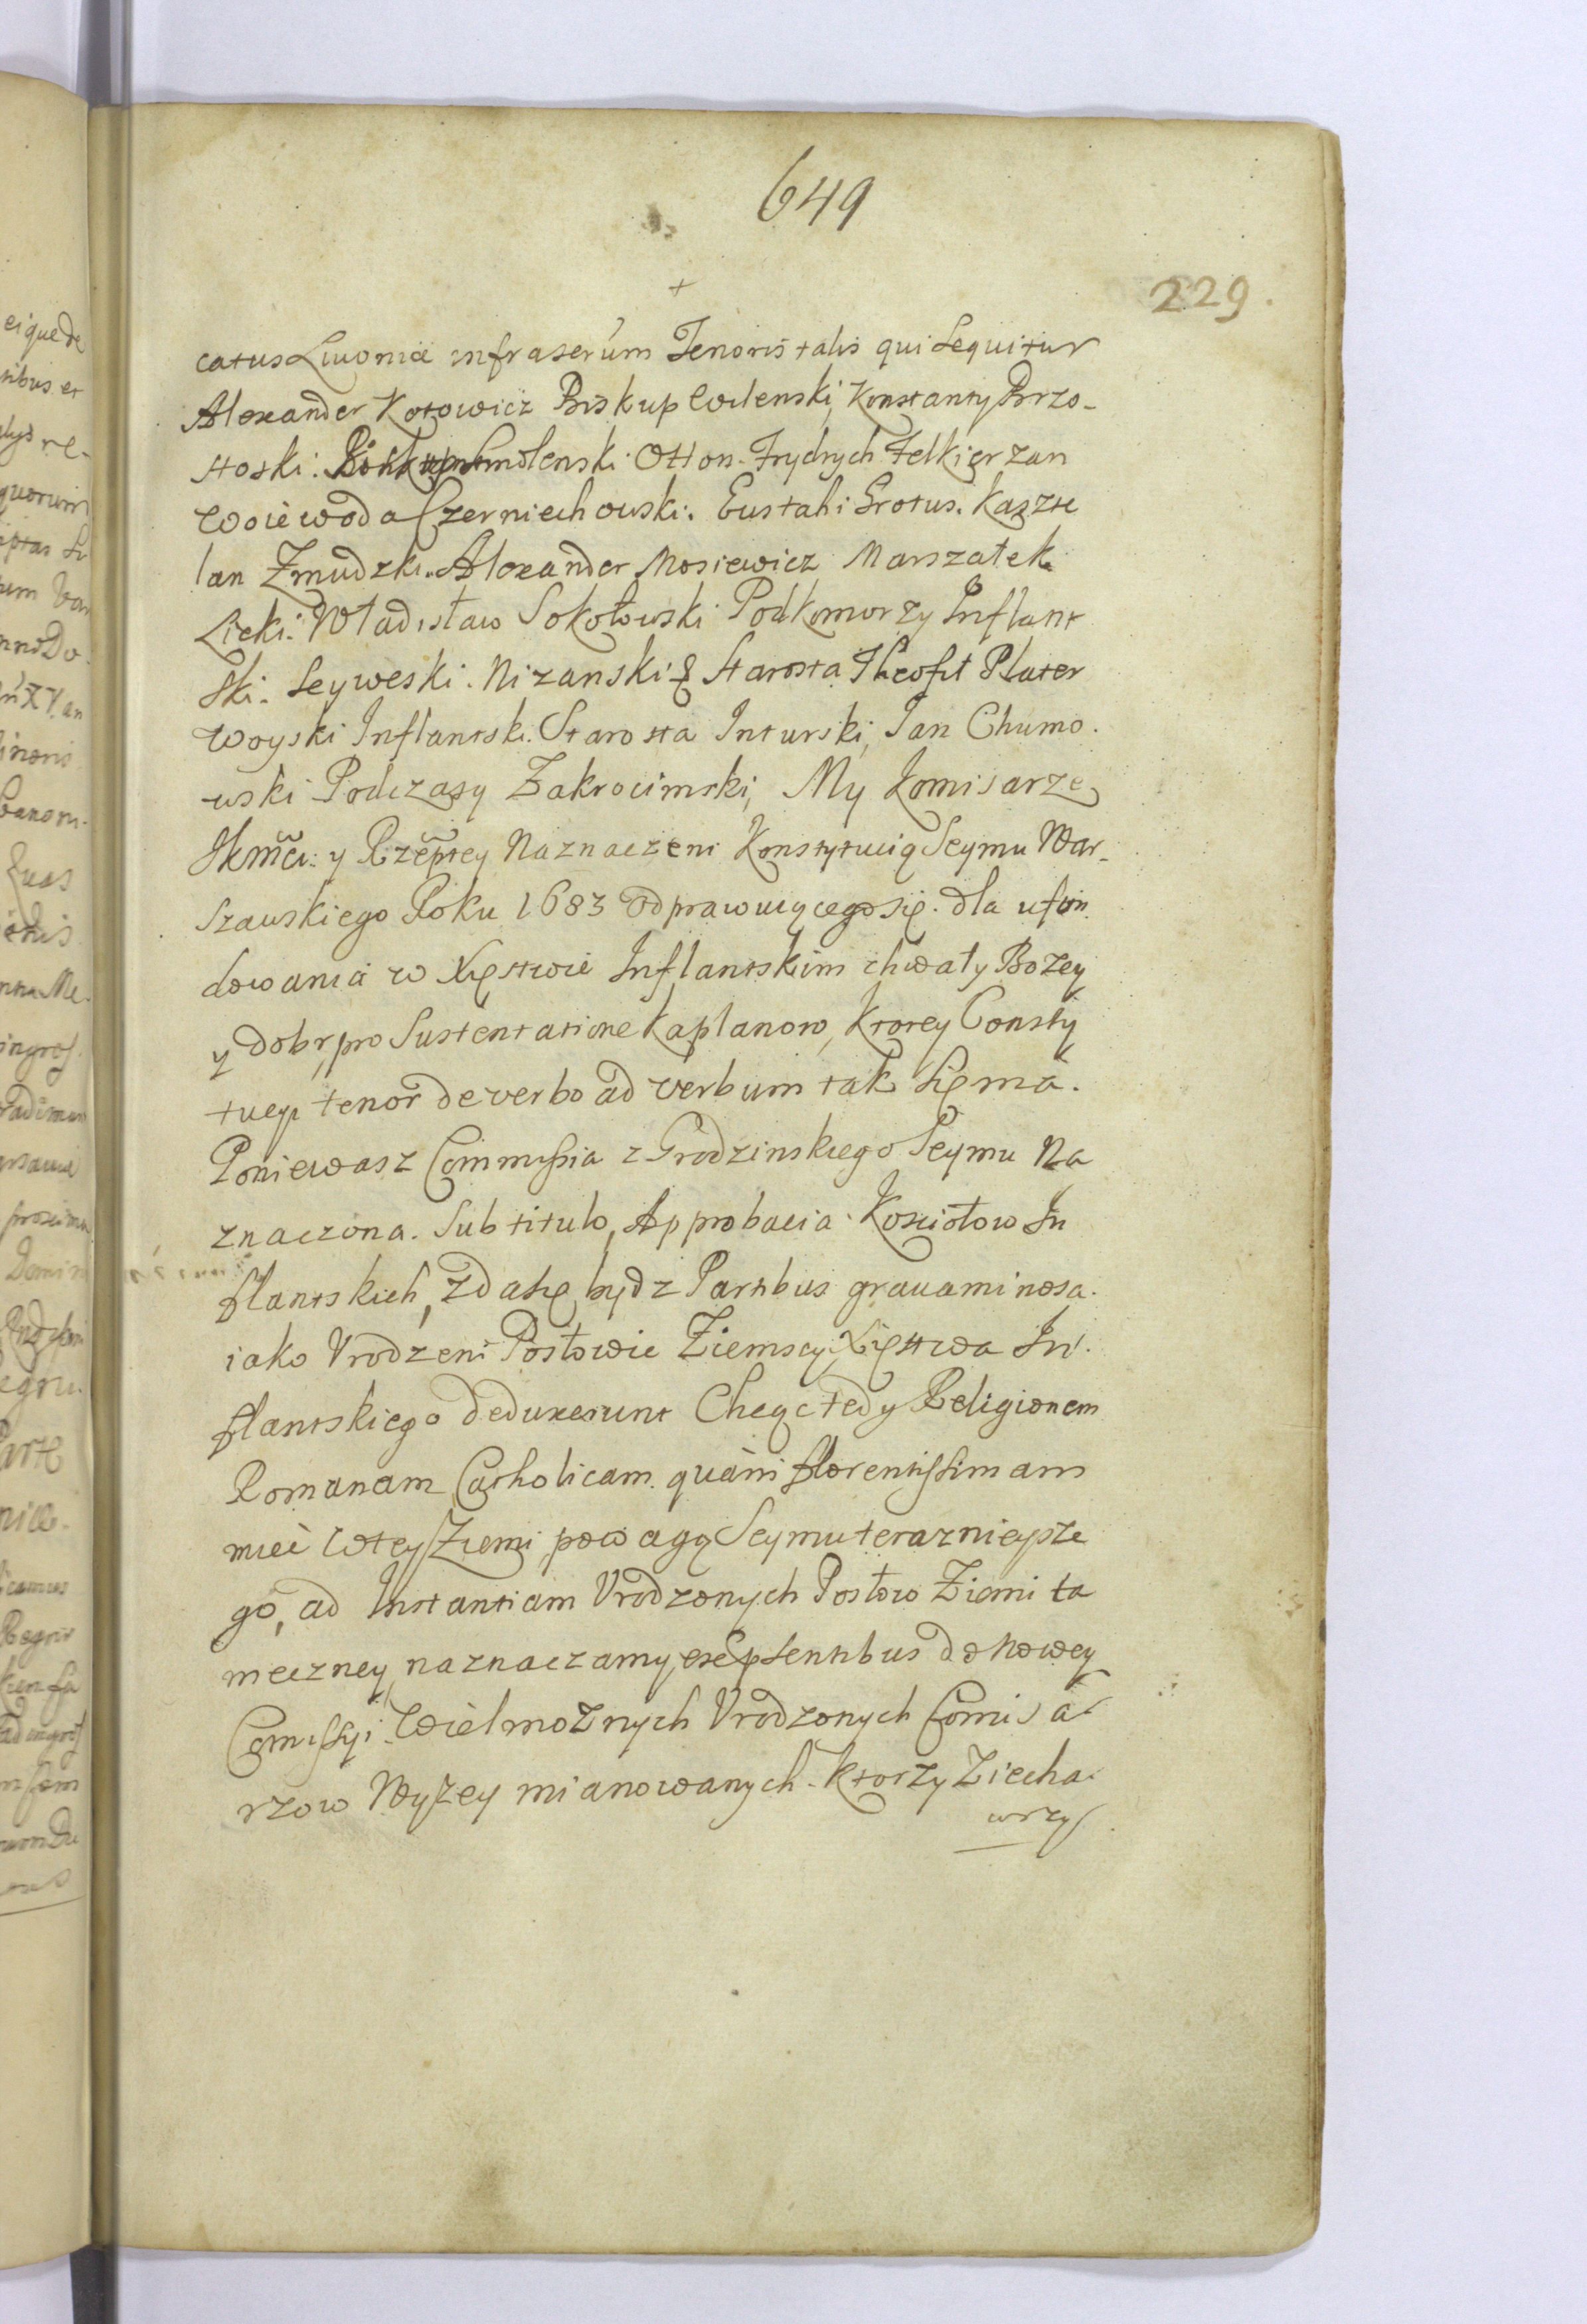 649
229.
catus Livoniæ infraserúm Tenoris talis qui Sequitur
Alexander Kotowicz Biskup Wilenski, Konstanty Brzo-
stoski. Biskup Smolenski. Otton. Frydrych Felkierzan
Woiewoda Czerniechowski. Eustahi Grotus. Kaszte
lan Zmudzki. Alexander Mosiewicz Marszałek
Licki. Władisław Sokołowski Podkomorzy Inflant
ski. Seyweski. Nizanski Starosta Theofil Plater
Woyski Inflantski. Starosta Inturski, Ian Chumo.
wski Podczaszy Zakrocimski, My Komisarze
IKmci: y Rzeptey Naznaczeni Konstytucią Seymu War-
szawskiego Roku 1683 odprawuiącego się. dla ufun
dowania w Xięstwie Inflantskim chwały Bozey
y dobr, pro Sustentatione Kapłanow, Ktorey Consty
tucyi tenor de verbo ad verbum tak się ma.
Poniewasz Commissia z Grodzinskiego Seymu Na
znaczona. Sub titulo, Approbacia. Kosciołow In
flantskich, zda się bydz Partibus gravaminosa.
iako Vrodzeni Posłowie Ziemscy Xięstwa In
flantskiego deduxerunt Chcąc tedy Religionem
Romanam Catholicam. quàm florentissimam
mieć w tey Ziemi, powagą Seymu terazniejsze
go, ad Instantiam Vrodzonych Posłow Ziemi ta
meczney, naznaczamy, do Nowey
Comissyi. Wielmoznych Vrodzonych Comisa
rzow Wyzey mianowanych. Ktorzy Ziecha
wszy